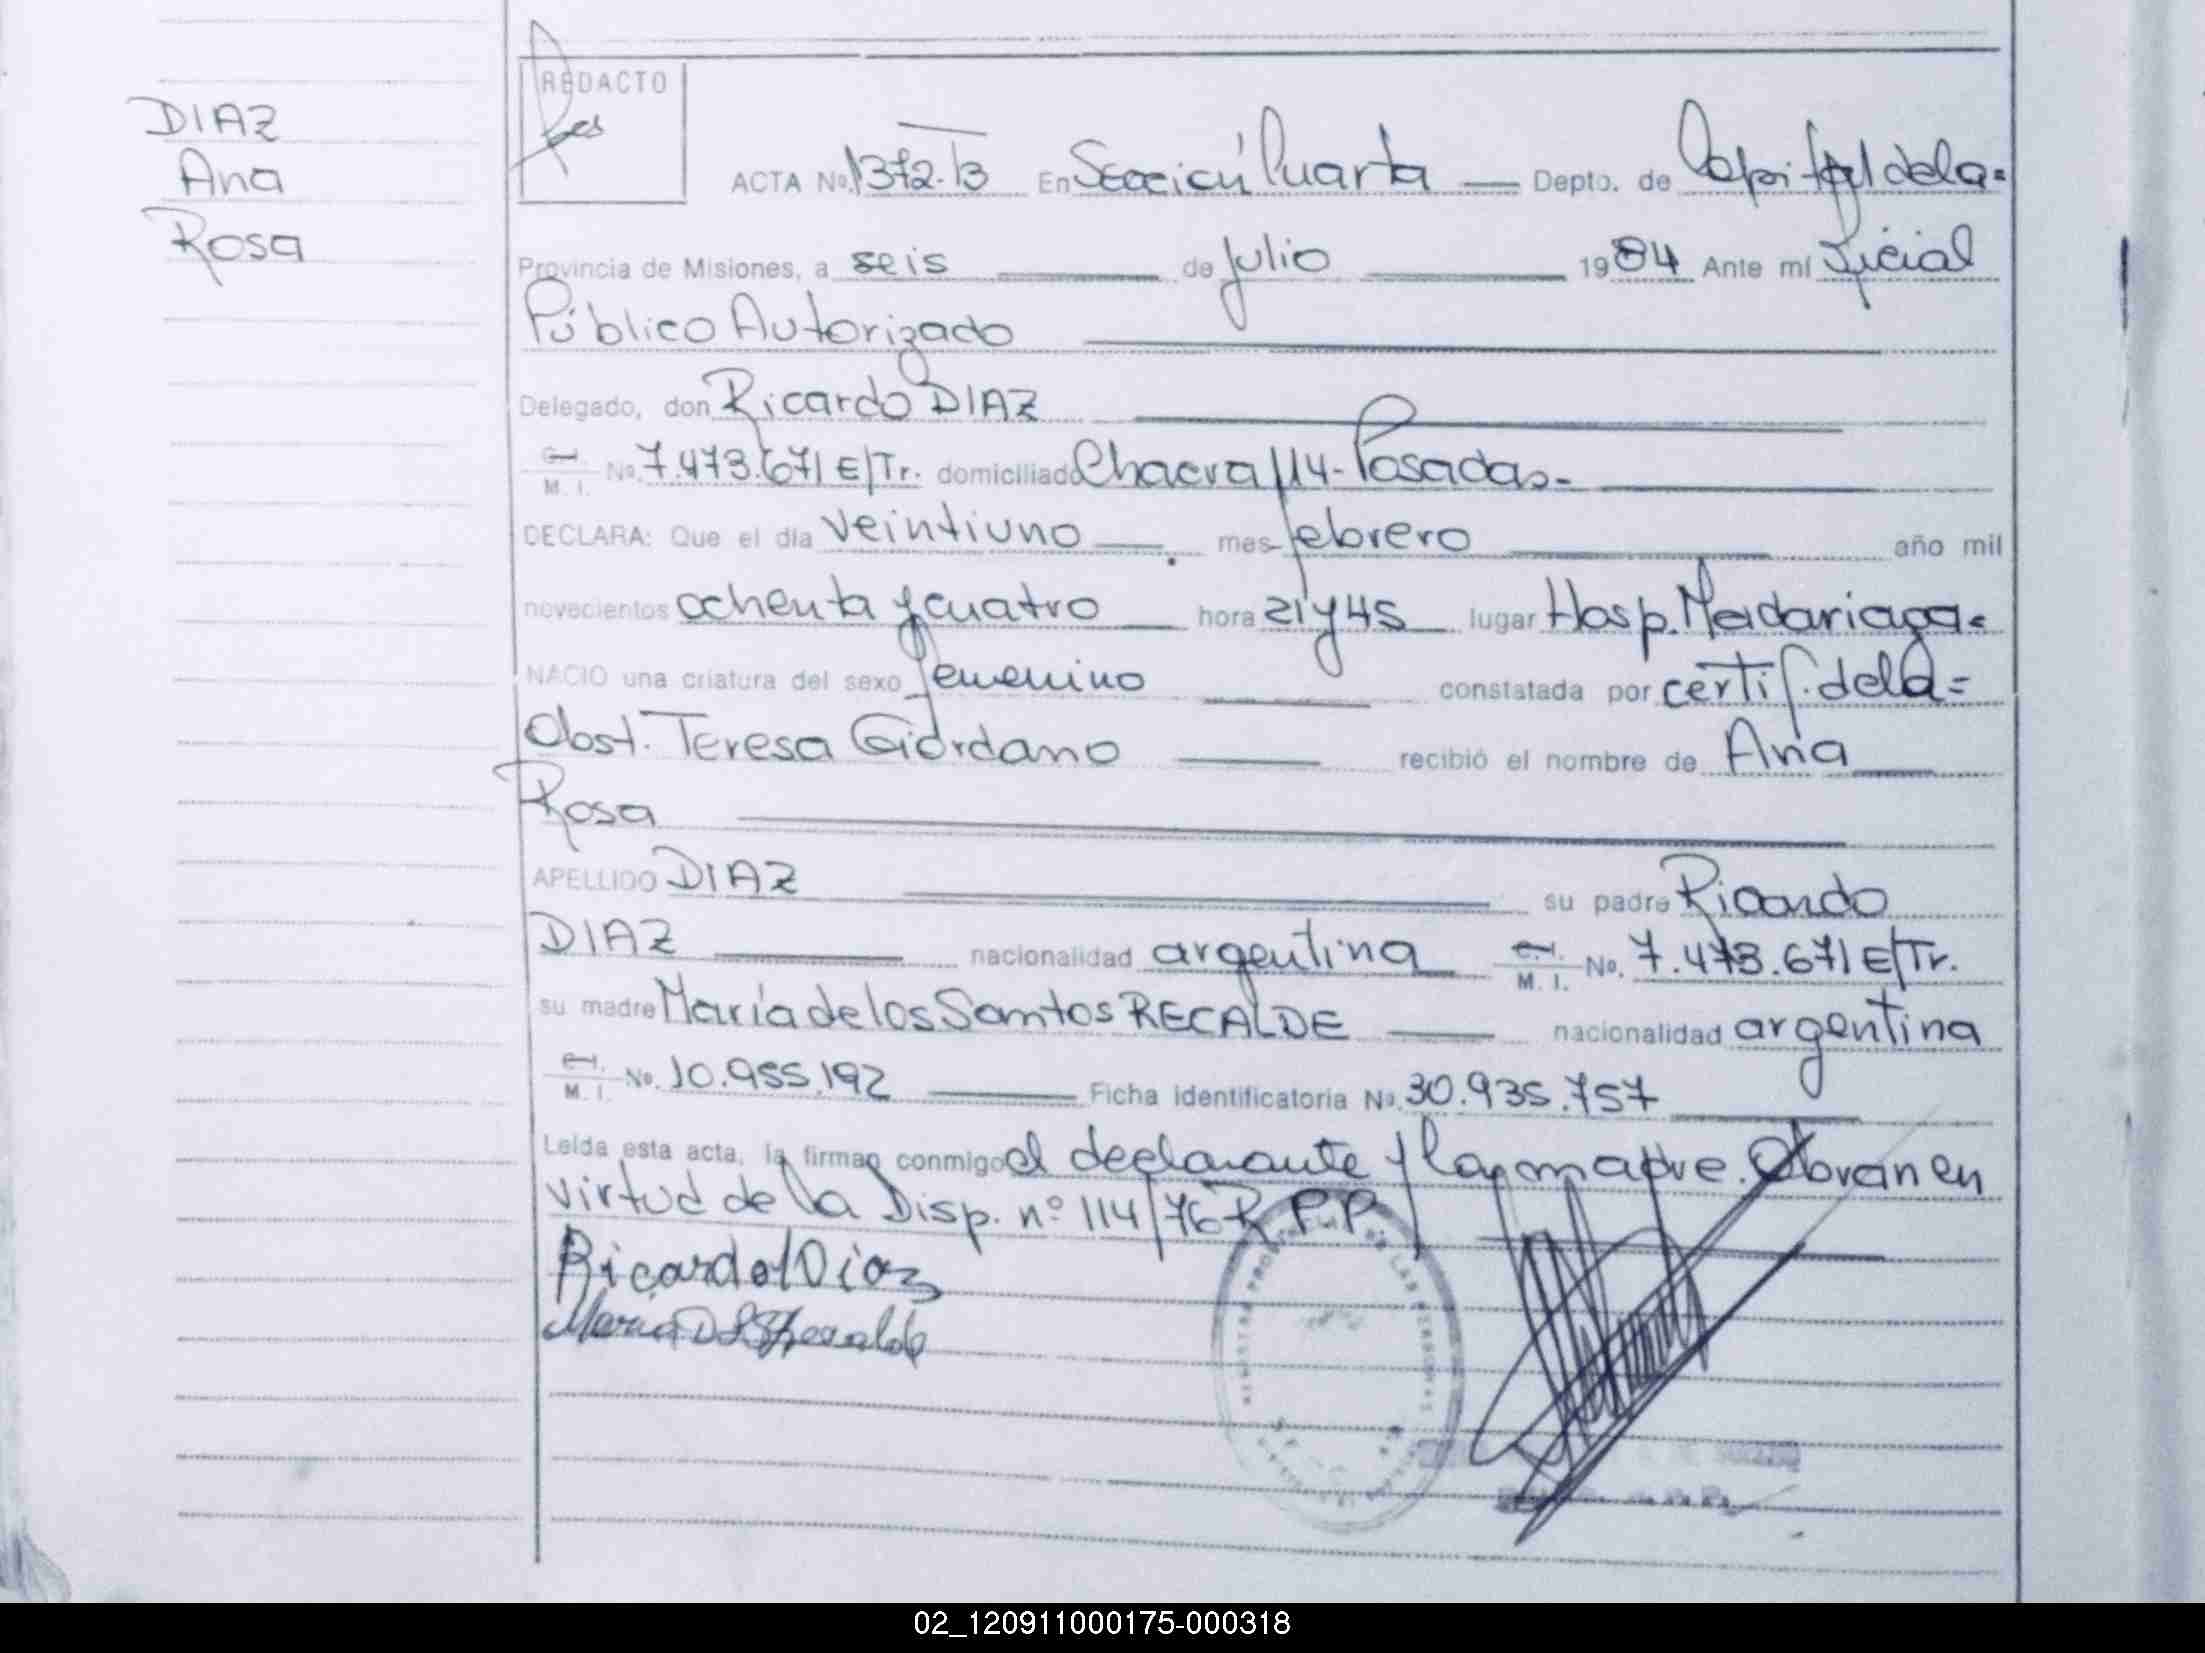 DIAZ
Ana
Rosa
REDACTO
ACTA Nº 1372. T3 En Sección Cuarta Depto. de Capital de la=
Provincia de Misiones, a seis de julio 1984 Ante mí Oficial
Público Autorizado
Delegado, don Ricardo DIAZ
C.I. M. I. Nº. 7.473.671 E/Tr. domiciliado Chacra 114-Posadas-
DECLARA: Que el día veintiuno mes febrero año mil
novecientos ochenta y cuatro hora 21 y 45 lugar Hosp. Madariaga=
NACIO una criatura del sexo femenino constatada por certif. de la=
Obst. Teresa Giordano recibió el nombre de Ana
Rosa
APELLIDO DIAZ su padre Ricardo
DIAZ nacionalidad argentina C.I. M. I. Nº. 7.473.671 E/Tr.
su madre María de los Santos RECALDE nacionalidad argentina
C.I. M. I. Nº. 10.955.192 Ficha identificatoria Nº. 30.935.757
Leída esta acta, la firman conmigo el declarante y la madre. Obran en
virtud de la Disp. nº 114/76 R.P.P.
Ricardo Diaz